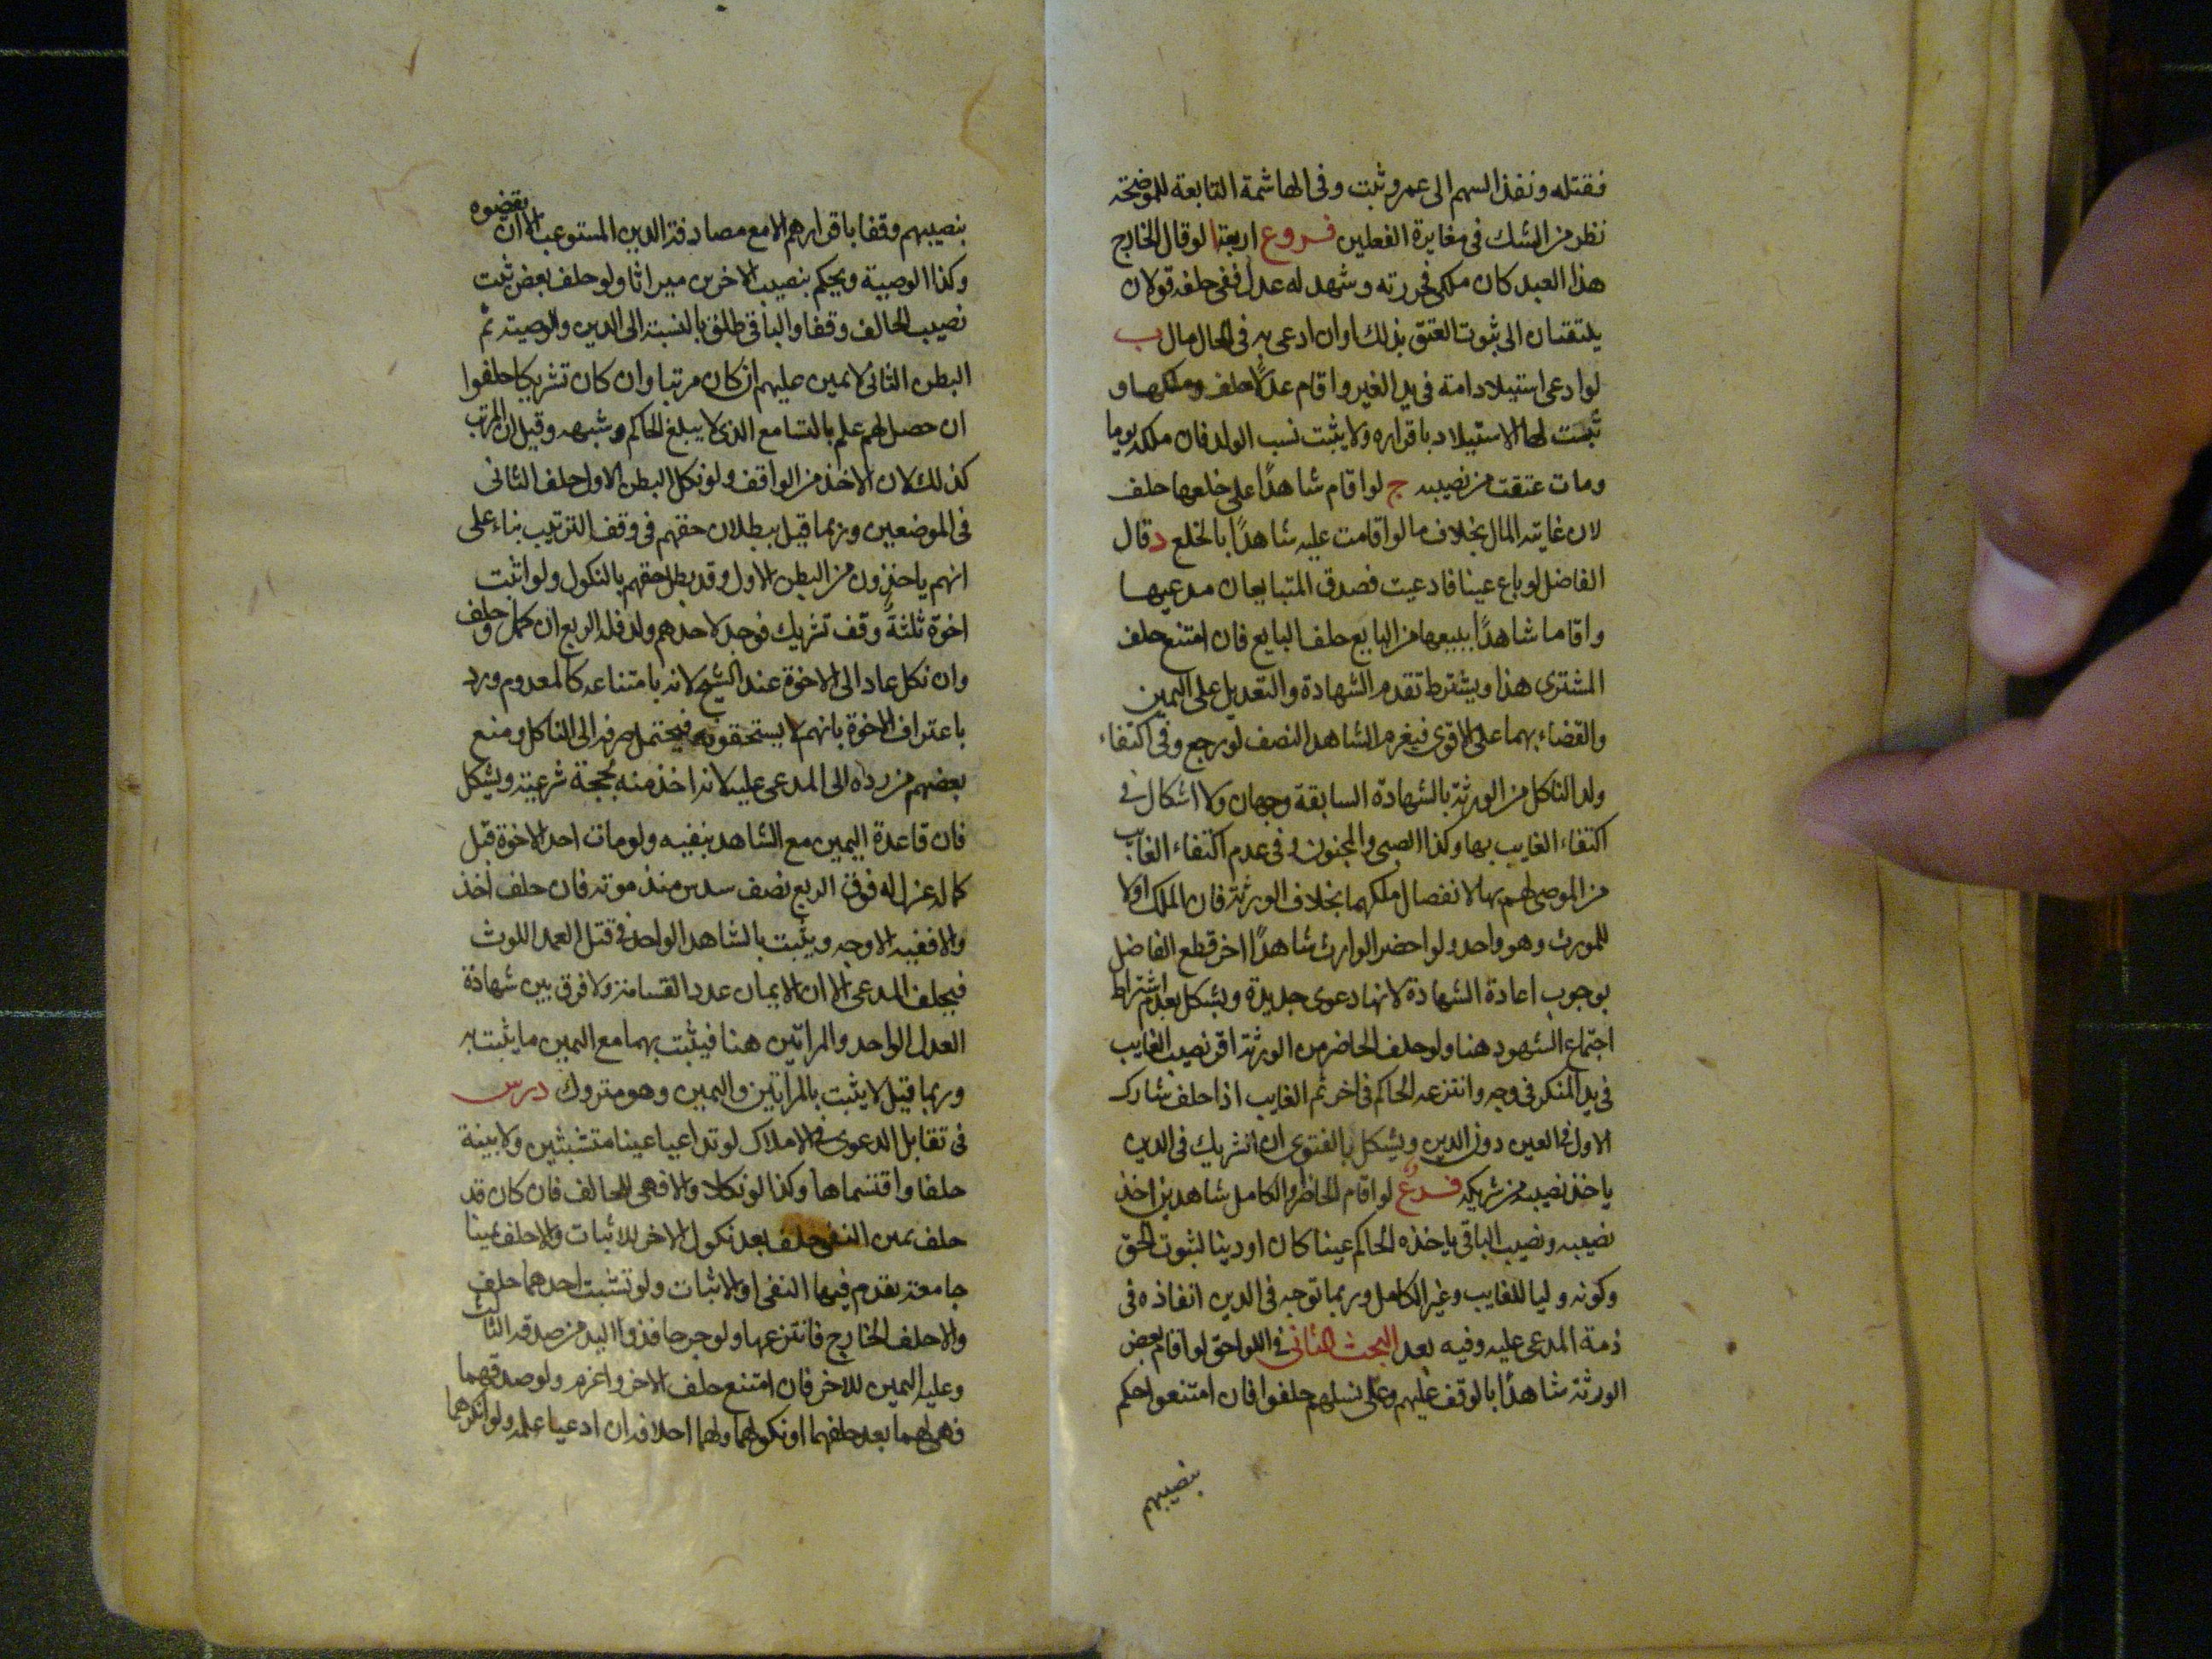 فقتله ونفذ السهم الى عمرو ثبت وفى الهاشمة التابعة للموضحة
نظر من الشك فى مغايرة الفعلين فروع اربعة ا لو قال الخارج
هذا العبد كان ملكى فحررته وشهد له عدل ففى حلفه قولان
يلتفتان الى ثبوت العتق بذلك اوان ادعى به فى الحال مال ب
لو ادعى استيلاد امته فى يد الغير واقام عدلا حلف وملكها و
ثبت لها الاستيلاد باقراره ولا يثبت نسب الولد فان ملكه يوما
ومات عتقت من نصيبه ج لو اقام شاهدًا على خلعها حلف
لان غايته المال بخلاف ما لو اقامت عليه شاهدًا بالخلع د قال
الفاضل لو باع عينا فادعيت فصدق المتبايعان مدعيها
واقاما شاهدًا ببيعها من البايع حلف البايع فان امتنع حلف
المشترى هذا ويشترط تقدم الشهادة والتعديل على اليمين
والقضاء بهما على الاقوى فيغرم الشاهد النصف لو رجع وفى اكتفاء
ولد الناكل من الورثة بالشهادة السابقة وجهان ولا اشكال فى
اكتفاء الغايب بها وكذا الصبى والمجنون وفى عدم اكتفاء الغايب
من الموصى لهم بها لانفصال ملكهما بخلاف الورثة فان الملك اولا
للمورث وهو واحد ولو احضر الوارث شاهدًا اخر قطع الفاضل
بوجوب اعادة الشهادة لانها دعوى جديدة ويشكل بعدم اشتراط
اجتماع الشهود هنا ولو حلف الحاضر من الورثة اقر نصيب الغايب
فى يد المنكر فى وجه وانتزعه الحاكم فى اخر ثم الغايب اذا حلف شارك
الاول فى العين دون الدين ويشكل بالفتوى ان الشريك فى الدين
ياخذ نصيبه من شريكه فرع لو اقام الحاظر والكامل شاهدين اخذ
نصيبه ونصيب الباقى ياخذه الحاكم عينا كان او دينا لثبوت الحق
وكونه وليا للغايب وغير الكامل وربما توجه فى الدين انفاذه فى
ذمة المدعى عليه وفيه بعد البحث الثانى فى اللواحق لو اقام بعض
الورثة شاهدًا بالوقف عليهم وعلى نسلهم حلفوا فان امتنعوا حكم
بنصيبهم
بنصيبهم وقفا باقرارهم الا مع مصادفة الدين المستوعب الا ان
يقضوه
وكذا الوصية ويحكم بنصيب الاخرين ميراثا ولو حلف بعض ثبت
نصيب الحالف وقفا والباقى طلق بالنسبة الى الدين والوصية ثم
البطن الثانى لا يمين عليهم ان كان مرتبا وان كان تشريكا حلفوا
ان حصل لهم علم بالتسامع الذى لا يبلغ الحاكم وشبهه وقيل ان المرتب
كذلك لان الاخذ من الواقف ولو نكل البطن الاول حلف الثانى
فى الموضعين وربما قيل ببطلان حقهم فى وقف الترتيب بناء على
انهم ياخذون من البطن الاول وقد بطل حقهم بالنكول ولو اثبت
اخوة ثلثة وقف تشريك فوجد لاحدهم ولد فله الربع ان كمل وحلف
وان نكل عاد الى الاخوة عند الشيخ لانه بامتناعه كالمعدوم ورد
باعتراف الاخوة بانهم لا يستحقونه فيحتمل صرفه الى الناكل ومنع
بعضهم من رده الى المدعى عليه لانه اخذ منه بحجة شرعية ويشكل
فان قاعدة اليمين مع الشاهد ينفيه ولو مات احد الاخوة قبل
كماله عزل له فوق الربع نصف سدس منذ موته فان حلف اخذ
والا ففيه الاوجه ويثبت بالشاهد الواحد فى قتل العمد اللوث
فيحلف المدعى الا ان الايمان عدد القسامة ولا فرق بين شهادة
العدل الواحد والمراتين هنا فيثبت بهما مع اليمين ما يثبت به
وربما قيل لا يثبت بالمراتين واليمين وهو متروك درس
فى تقابل الدعوى فى الاملاك لو تداعيا عينا متشبثين ولا بينة
حلفا واقتسماها وكذا لو نكلا والا فهى للحالف فان كان قد
حلف يمين النفى حلف بعد نكول الاخر للاثبات والا حلف يمينا
جامعة يقدم فيها النفى او الاثبات ولو تشبث احدهما حلف
والا حلف الخارج فانتزعها ولو خرجا فذو اليد من صدقه الثالث
وعليه اليمين للاخر فان امتنع حلف الاخر واغرم ولو صدقهما
فهى لهما بعد حلفهما او نكولهما ولهما احلافه ان ادعيا علمه ولو انكرهما